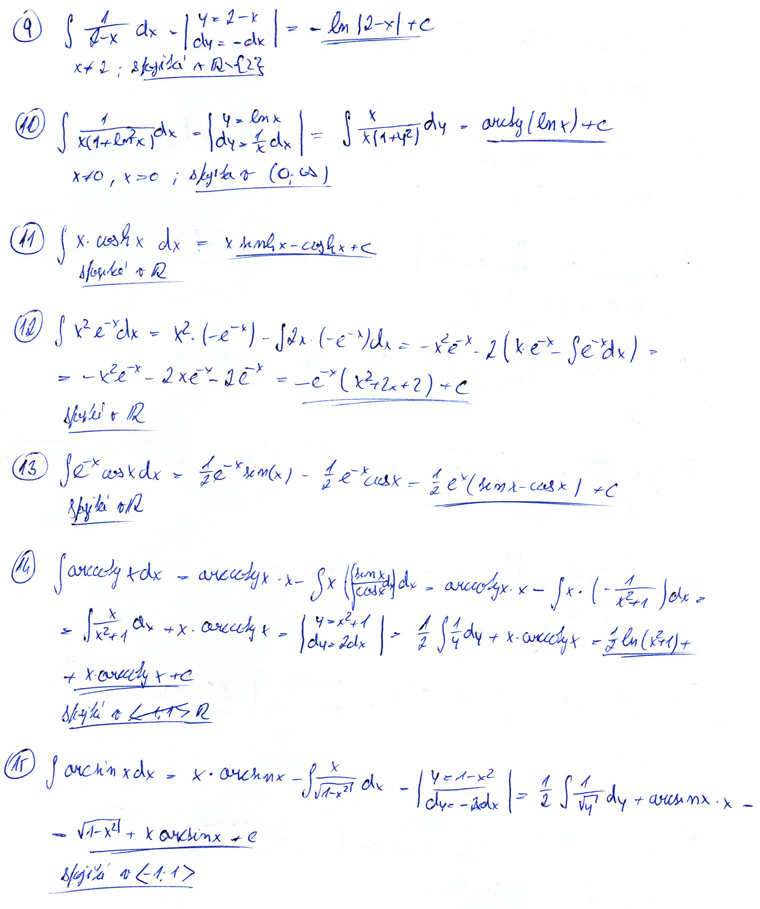 ⑨ ∫ 1/(2-x) dx = | y = 2-x ; dy = -dx | = -ln |2-x| + c
x ≠ 2 ; spojitá v R\{2}
⑩ ∫ 1/(x(1+ln²x)) dx = | y = ln x ; dy = 1/x dx | = ∫ x/(x(1+y²)) dy = arctg (ln x) + c
x ≠ 0, x > 0 ; spojitá v (0; ∞)
⑪ ∫ x · cosh x dx = x sinh x - cosh x + c
spojitá v R
⑫ ∫ x² e^-x dx = x² · (-e^-x) - ∫ 2x · (-e^-x) dx = -x² e^-x - 2 (x · e^-x - ∫ e^-x dx) =
= -x² e^-x - 2x e^-x - 2e^-x = -e^-x (x² + 2x + 2) + c
spojitá v R
⑬ ∫ e^-x cos x dx = 1/2 e^-x sin(x) - 1/2 e^-x cos x = 1/2 e^x (sin x - cos x) + c
spojitá v R
⑭ ∫ arccotg x dx = arccotg x · x - ∫ x dx = arccotg x · x - ∫ x · (- 1/(x²+1)) dx =
= ∫ x/(x²+1) dx + x · arccotg x = | y = x²+1 ; dy = 2dx | = 1/2 ∫ 1/y dy + x · arccotg x = 1/2 ln (x²+1) +
+ x · arccotg x + c
spojitá v R
⑮ ∫ arcsin x dx = x · arcsin x - ∫ x/√(1-x²) dx = | y = 1-x² ; dy = -2dx | = 1/2 ∫ 1/√y dy + arcsin x · x =
= √(1-x²) + x arcsin x + c
spojitá v <-1; 1>